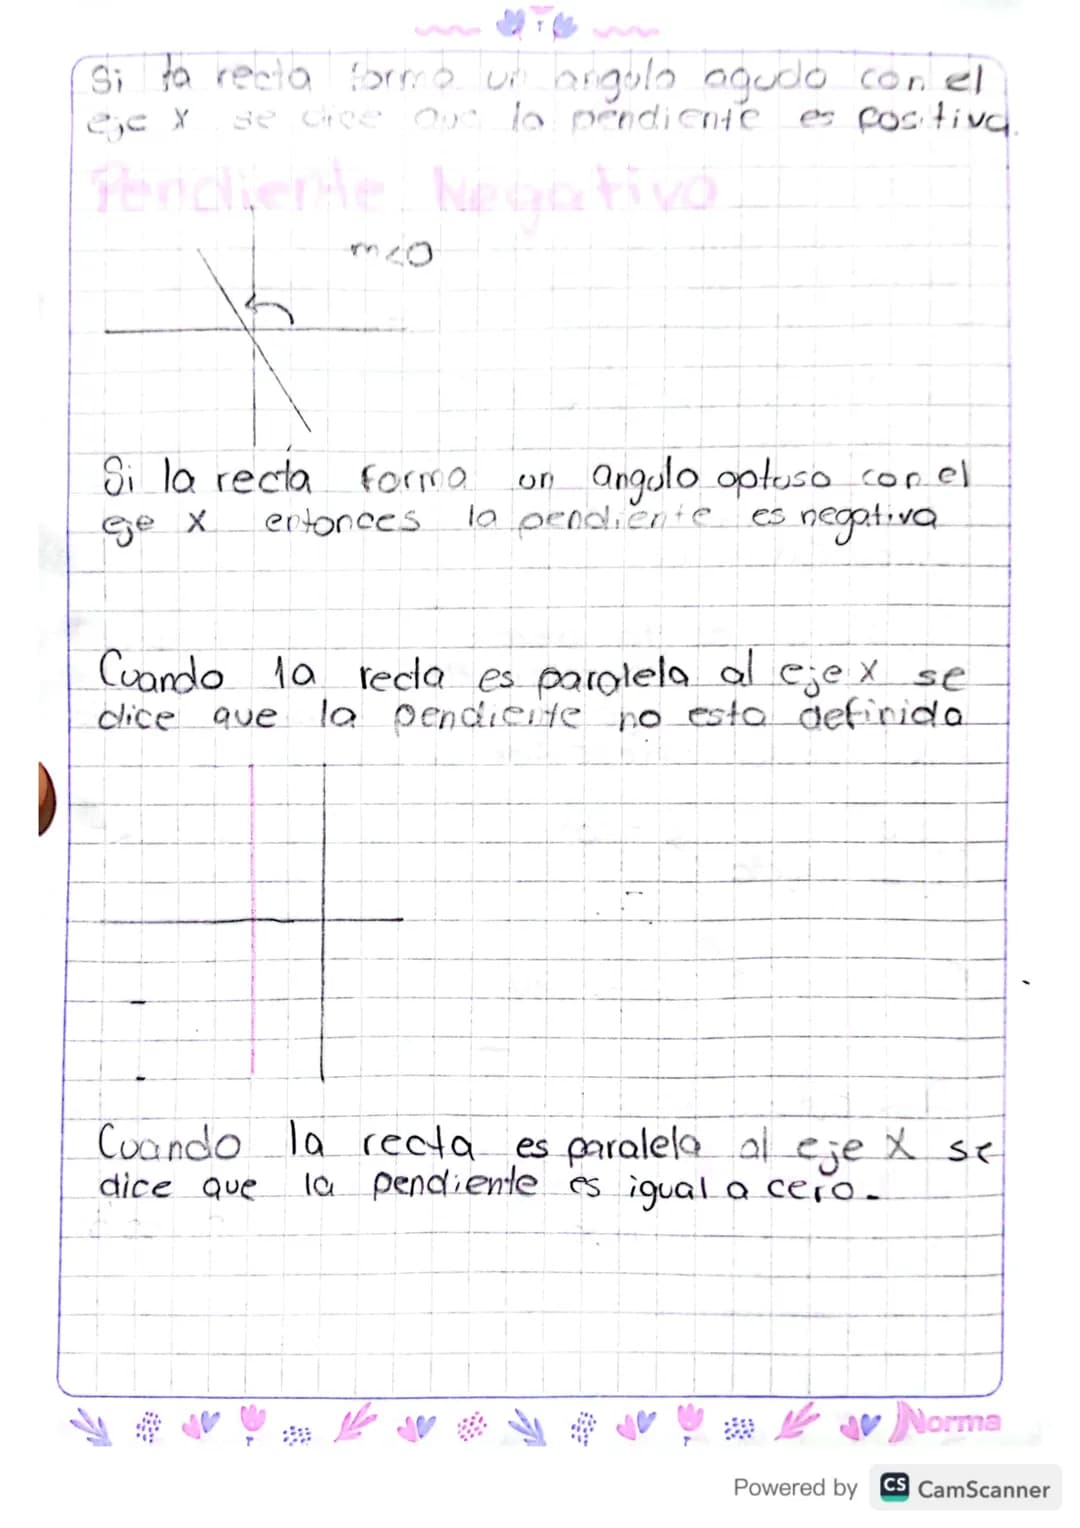 Si la recta forma un angulo agudo con el
eje X se dice que la pendiente es positiva.
Pendiente Negativa
m<0
Si la recta forma un angulo optuso con el
eje X entonces la pendiente es negativa
Cuando la recta es paralela al eje X se
dice que la pendiente no esta definida
Cuando la recta es paralela al eje X se
dice que la pendiente es igual a cero.
Norma
Powered by CS CamScanner